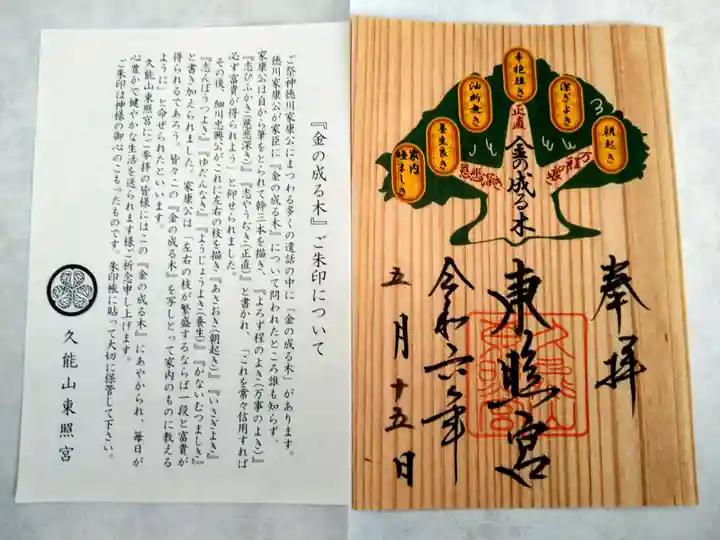 『金の成る木』ご朱印について
ご祭神徳川家康公にまつわる多くの遺話の中に「金の成る木」があります。
徳川家康公が家臣に『金の成る木』について問われたところ誰も知らず、
家康公は自から筆をとられて幹三本を描き、『よろず程のよき(万事のよき)』
『志ひふかき(慈悲深き)』『志やうぢき(正直)』と書かれ、「これを常々信用すれば
必ず富貴が得られよう」と仰せられました。
その後、細川忠興公がこれに左右の枝を描き『あさおき(朝起き)』『いさぎよき』
『志んぼうつよき』『ゆだんなき』『ようじょうよき(養生)』『かないむつましき』
と書き加えられました。家康公は「左右の枝が繁盛するならば一段と富貴が
得られるであろう。皆々この『金の成る木』を写しとって家内のものに教える
ように」と命ぜられたといいます。
久能山東照宮にご参拝の皆様にはこの『金の成る木』にあやかられ、毎日が
心豊かで健やかな生活を送られます様ご祈念申し上げます。
ご朱印は神様の御心のこもったものです。朱印帳に貼って大切に保管して下さい。
久能山東照宮
朝起き
潔ぎよき
辛抱強き
油断無き
養生良き
家内睦ましき
万程よき
正直
慈悲深き
金の成る木
奉拝
東照宮
令和六年
五月十五日